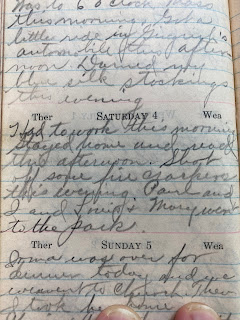 Was to 6 o'clock mass
this morning. Got a
little ride in August's
automobile this after
noon. Darned my
blue silk stockings
this evening.
Ther SATURDAY 4 Wea
Had to work this morning
stayed home and read
this afternoon. Shot
off some fire crackers
this evening. Paul and
I and Mary went
to the park.
Ther SUNDAY 5 Wea
Irma was over for
dinner today and we
went to Church. Then
I took her home